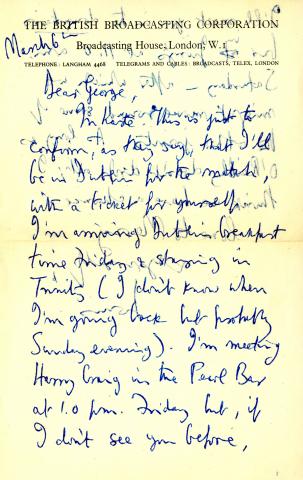 THE BRITISH BROADCASTING CORPORATION
Broadcasting House, London, W.1
TELEPHONE: LANGHAM 4468 TELEGRAMS AND CABLES: BROADCASTS, TELEX, LONDON
March 6th
Dear George,
In haste. This is just to
confirm, as they say, that I'll
be in Dublin for the match,
with a ticket for yourself.
I'm arriving Dublin breakfast
time Friday & staying in
Trinity (I don't know when
I'm going back but probably
Sunday evening). I'm meeting
Harry Craig in the Pearl Bar
at 1.0 pm. Friday but, if
I don't see you before,